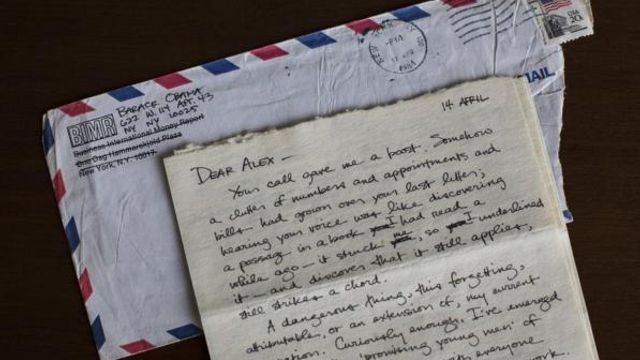 BARACK OBAMA
622 W. 114 APT. 43
NY NY
10025
BIMR
Business International Money Report
One Dag Hammarskjold Plaza
New York, N.Y. 10017
NEW YORK
1984
USA
20c
MAIL
14 APRIL
DEAR ALEX —
Your call gave me a boost. Somehow
a clutter of numbers and appointments and
bills had grown over your last letter;
hearing your voice was like discovering
a passage in a book I had read a
while ago — it struck me, so I underlined
it — and discover that it still applies,
still strikes a chord.
A dangerous thing, this forgetting,
attributable, or an extension of, my current
Curiously enough, I've emerged
'promising young men' of
with everyone